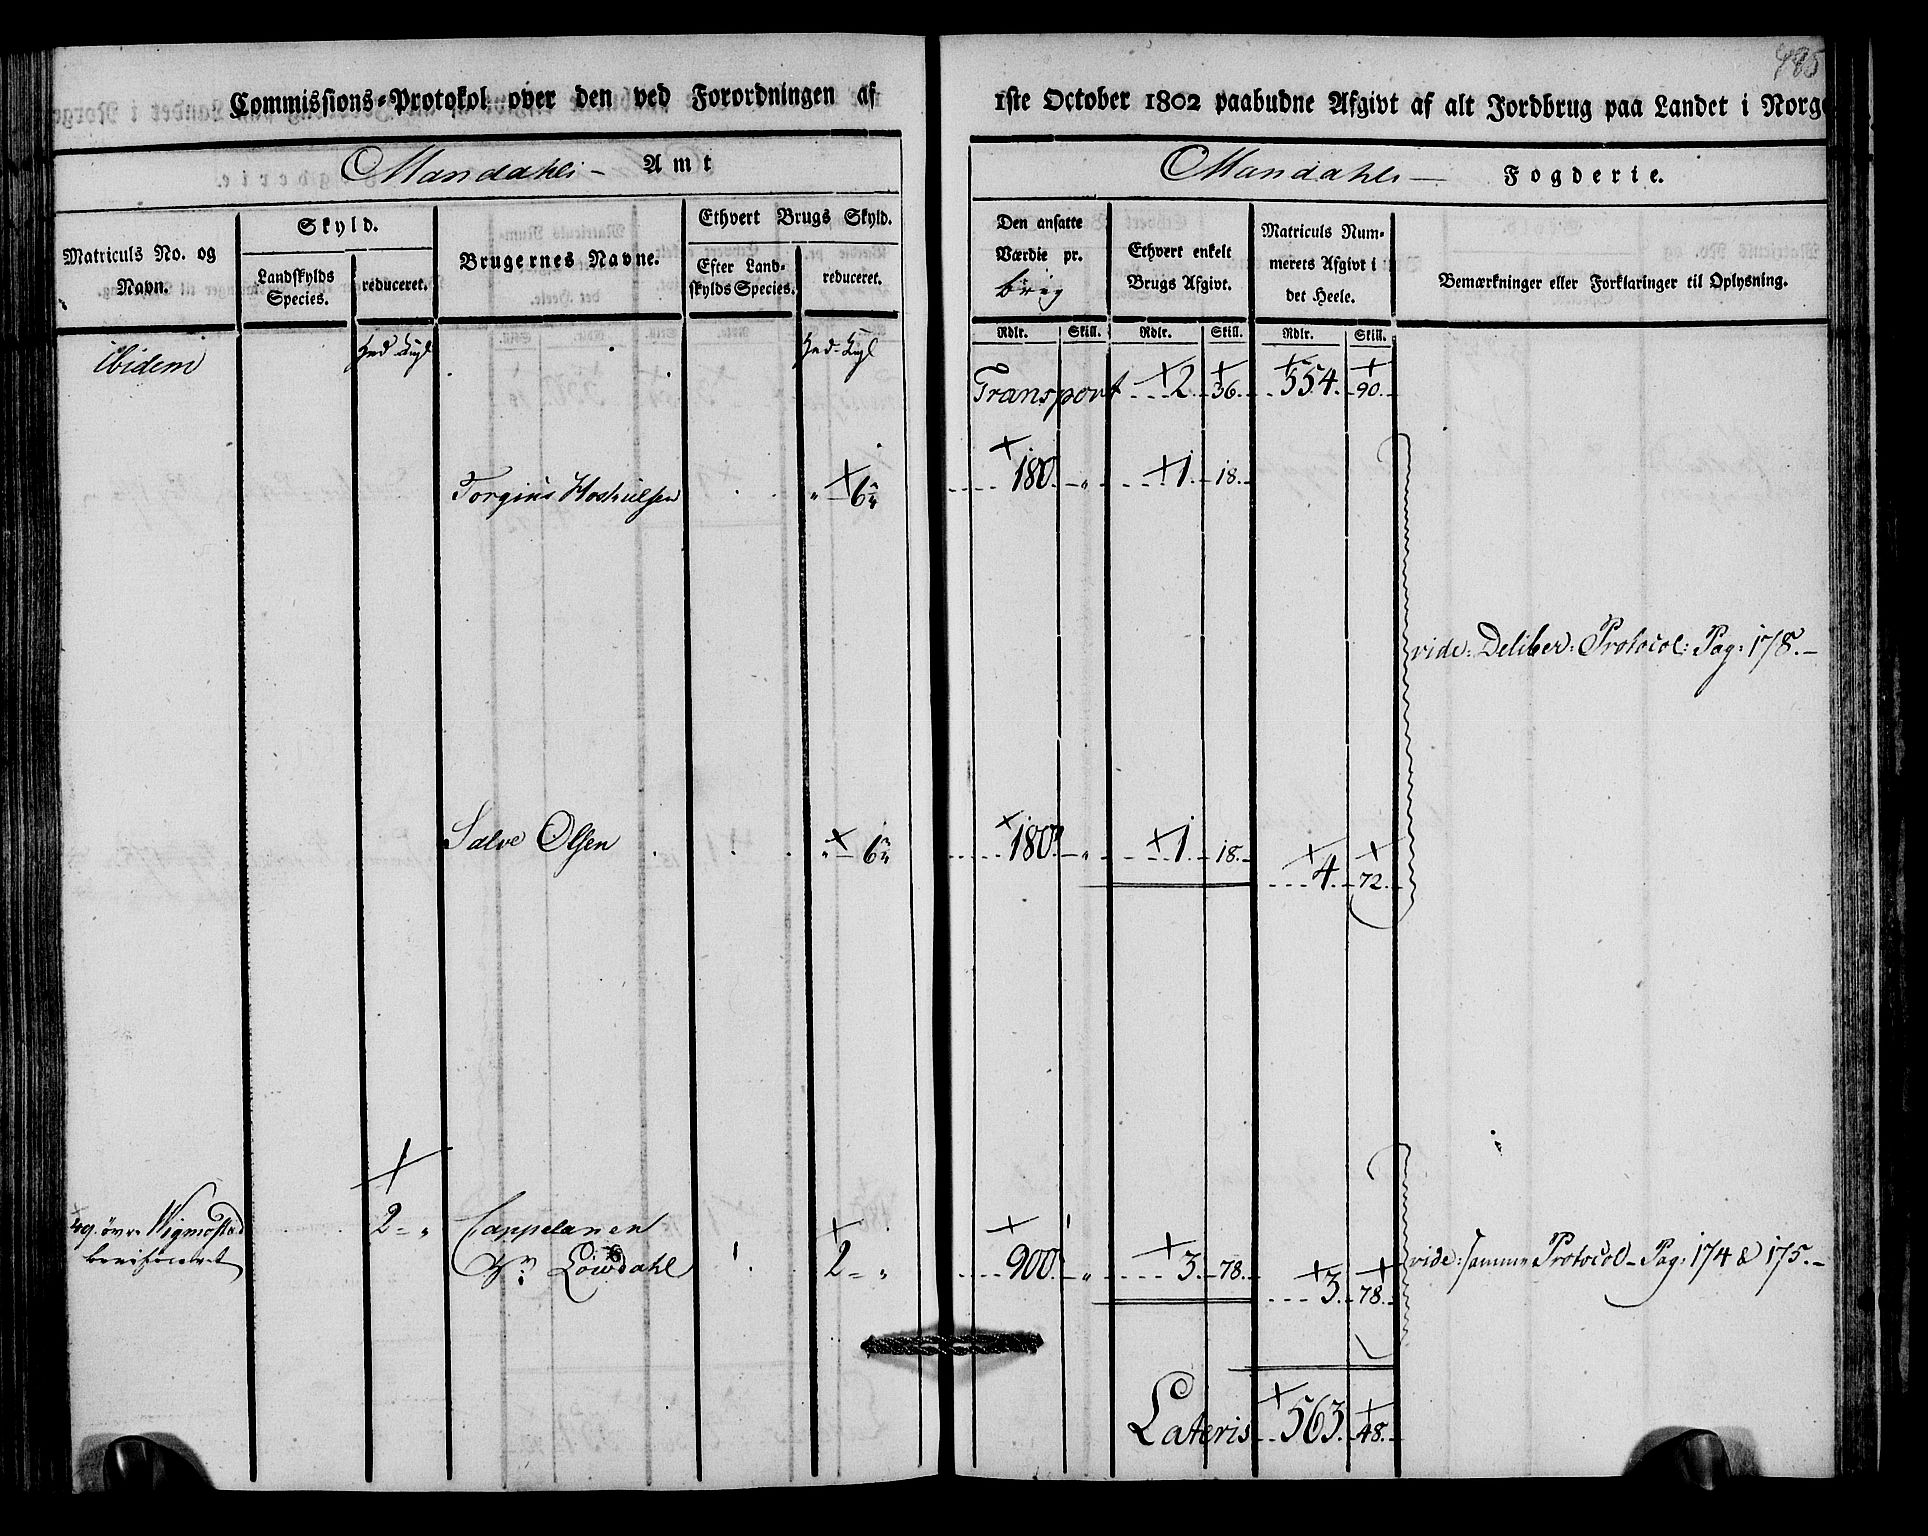 485
Commissions-Protokol over den ved Forordningen af 1ste October 1802 paabudne Afgivt af alt Jordbrug paa Landet i Norge
Mandahls - Amt
Mandahls - Fogderie.
Matriculs No. og Navn.
Skyld.
Landskylds Species.
reduceret.
Brugernes Navne.
Ethvert Brugs Skyld.
Efter Land-
skylds Species.
reduceret.
Den ansatte
Værdie pr.
brug
Ethvert enkelt
Brugs Afgivt.
Matriculs Num-
merets Afgivt i
det Heele.
Bemærkninger eller Forklaringer til Oplysning.
Rdlr. Skill. Rdlr. Skill. Rdlr. Skill.
ibidem Hud - Kugl Hud - Kugl
Transport 2. 36. 554. 90.
Torgius Hoskulsen " 6 180. " 1. 18.
vide: Deliber: Protocol: Pag: 178.-
Salve Olsen " 6 180. " 1. 18.
4. 72.
49. övre Wigmostad 2 - " Cappelanen
Hr: Löwdahl 2 - " 900. " 3. 78.
3. 78.
vide: samme Protocol - Pag: 174 & 175.-
Lateris 563. 48.